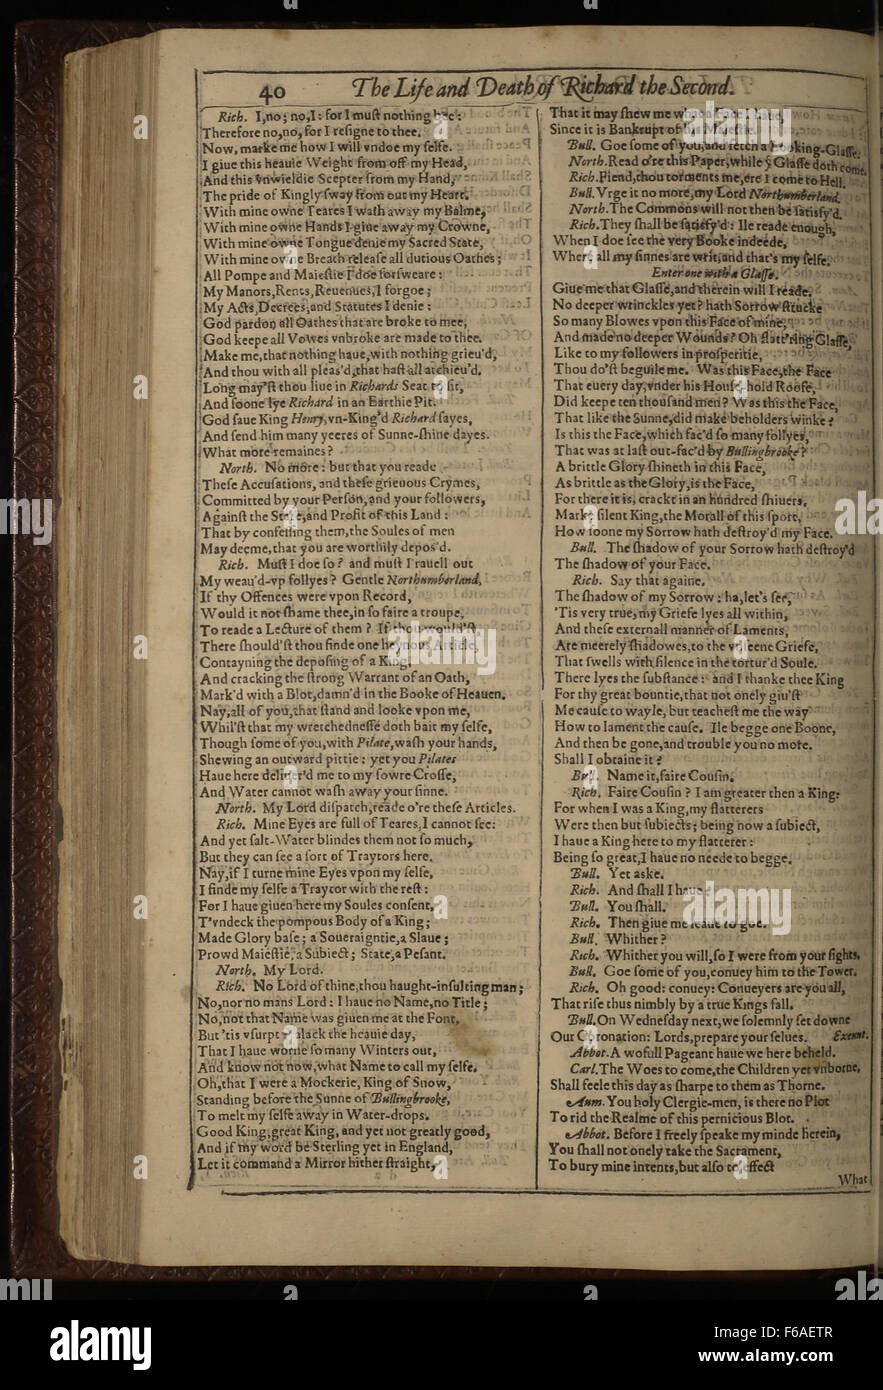 40 The Life and Death of Richard the Second.
Rich. I, no; no, I: for I muſt nothing bee:
Therefore no, no, for I reſigne to thee.
Now, marke me how I will vndoe my ſelfe.
I giue this heauie Weight from off my Head,
And this vnwieldie Scepter from my Hand,
The pride of Kingly ſway from out my Heart.
With mine owne Teares I waſh away my Balme,
With mine owne Hands I giue away my Crowne,
With mine owne Tongue denie my Sacred State,
With mine owne Breath releaſe all dutious Oathes;
All Pompe and Maieſtie I doe forſweare:
My Manors, Rents, Reuenues, I forgoe;
My Acts, Decrees, and Statutes I denie:
God pardon all Oathes that are broke to mee,
God keepe all Vowes vnbroke are made to thee.
Make me, that nothing haue, with nothing grieu'd,
And thou with all pleas'd, that haſt all atchieu'd.
Long may'ſt thou liue in Richards Seat to ſit,
And ſoone lye Richard in an Earthie Pit.
God ſaue King Henry, vn-King'd Richard ſayes,
And ſend him many yeeres of Sunne-ſhine dayes.
What more remaines?
North. No more: but that you reade
Theſe Accuſations, and theſe grieuous Crymes,
Committed by your Perſon, and your followers,
Againſt the State, and Profit of this Land:
That by confeſſing them, the Soules of men
May deeme, that you are worthily depos'd.
Rich. Muſt I doe ſo? and muſt I rauell out
My weau'd-vp follyes? Gentle Northumberland,
If thy Offences were vpon Record,
Would it not ſhame thee, in ſo faire a troupe,
To reade a Lecture of them? If thou would'ſt,
There ſhould'ſt thou finde one heynous Article,
Contayning the depoſing of a King,
And cracking the ſtrong Warrant of an Oath,
Mark'd with a Blot, damn'd in the Booke of Heauen.
Nay, all of you, that ſtand and looke vpon me,
Whil'ſt that my wretchedneſſe doth bait my ſelfe,
Though ſome of you, with Pilate, waſh your hands,
Shewing an outward pittie: yet you Pilates
Haue here deliuer'd me to my ſowre Croſſe,
And Water cannot waſh away your ſinne.
North. My Lord diſpatch, reade o're theſe Articles.
Rich. Mine Eyes are full of Teares, I cannot ſee:
And yet ſalt-Water blindes them not ſo much,
But they can ſee a ſort of Traytors here.
Nay, if I turne mine Eyes vpon my ſelfe,
I finde my ſelfe a Traytor with the reſt:
For I haue giuen here my Soules conſent,
T'vndeck the pompous Body of a King;
Made Glory baſe; a Soueraigntie, a Slaue;
Prowd Maieſtie, a Subiect; State, a Peſant.
North. My Lord.
Rich. No Lord of thine, thou haught-inſulting man;
No, nor no mans Lord: I haue no Name, no Title;
No, not that Name was giuen me at the Font,
But 'tis vſurpt: alack the heauie day,
That I haue worne ſo many Winters out,
And know not now, what Name to call my ſelfe.
Oh, that I were a Mockerie, King of Snow,
Standing before the Sunne of Bullingbrooke,
To melt my ſelfe away in Water-drops.
Good King, great King, and yet not greatly good,
And if my word be Sterling yet in England,
Let it command a Mirror hither ſtraight,
That it may ſhew me what a Face I haue,
Since it is Bankrupt of his Maieſtie.
Bull. Goe ſome of you, and fetch a Looking-Glaſſe.
North. Read o're this Paper, while ye Glaſſe doth come.
Rich. Fiend, thou torments me, ere I come to Hell.
Bull. Vrge it no more, my Lord Northumberland.
North. The Commons will not then be ſatisfy'd.
Rich. They ſhall be ſatisfy'd: Ile reade enough,
When I doe ſee the very Booke indeede,
Where all my ſinnes are writ, and that's my ſelfe.
Enter one with a Glaſſe.
Giue me that Glaſſe, and therein will I reade.
No deeper wrinckles yet? hath Sorrow ſtrucke
So many Blowes vpon this Face of mine,
And made no deeper Wounds? Oh flatt'ring Glaſſe,
Like to my followers in proſperitie,
Thou do'ſt beguile me. Was this Face, the Face
That euery day, vnder his Houſe-hold Roofe,
Did keepe ten thouſand men? Was this the Face,
That like the Sunne, did make beholders winke?
Is this the Face, which fac'd ſo many follyes,
That was at laſt out-fac'd by Bullingbrooke?
A brittle Glory ſhineth in this Face,
As brittle as the Glory, is the Face,
For there it is, crackt in an hundred ſhiuers.
Marke ſilent King, the Morall of this ſport,
How ſoone my Sorrow hath deſtroy'd my Face.
Bull. The ſhadow of your Sorrow hath deſtroy'd
The ſhadow of your Face.
Rich. Say that againe.
The ſhadow of my Sorrow: ha, let's ſee,
'Tis very true, my Griefe lyes all within,
And theſe externall manner of Laments,
Are meerely ſhadowes, to the vnſeene Griefe,
That ſwells with ſilence in the tortur'd Soule.
There lyes the ſubſtance: and I thanke thee King
For thy great bountie, that not onely giu'ſt
Me cauſe to wayle, but teacheſt me the way
How to lament the cauſe. Ile begge one Boone,
And then be gone, and trouble you no more.
Shall I obtaine it?
Bull. Name it, faire Couſin.
Rich. Faire Couſin? I am greater then a King:
For when I was a King, my flatterers
Were then but ſubiects; being now a ſubiect,
I haue a King here to my flatterer:
Being ſo great, I haue no neede to begge.
Bull. Yet aske.
Rich. And ſhall I haue?
Bull. You ſhall.
Rich. Then giue me leaue to goe.
Bull. Whither?
Rich. Whither you will, ſo I were from your ſights.
Bull. Goe ſome of you, conuey him to the Tower.
Rich. Oh good: conuey: Conueyers are you all,
That riſe thus nimbly by a true Kings fall.
Bull. On Wedneſday next, we ſolemnly ſet downe
Our Coronation: Lords, prepare your ſelues. Exeunt.
Abbot. A wofull Pageant haue we here beheld.
Carl. The Woes to come, the Children yet vnborne,
Shall feele this day as ſharpe to them as Thorne.
Aum. You holy Clergie-men, is there no Plot
To rid the Realme of this pernicious Blot.
Abbot. Before I freely ſpeake my minde herein,
You ſhall not onely take the Sacrament,
To bury mine intents, but alſo to effect
What
alamy
www.alamy.com
Image ID: F6AETR